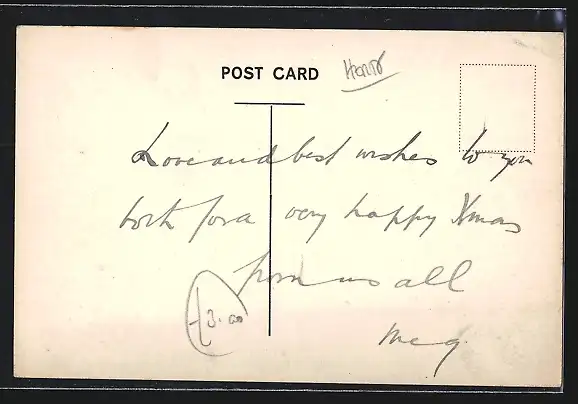 POST CARD
Love and best wishes to you
both for a very happy Xmas
from us all
£3.00